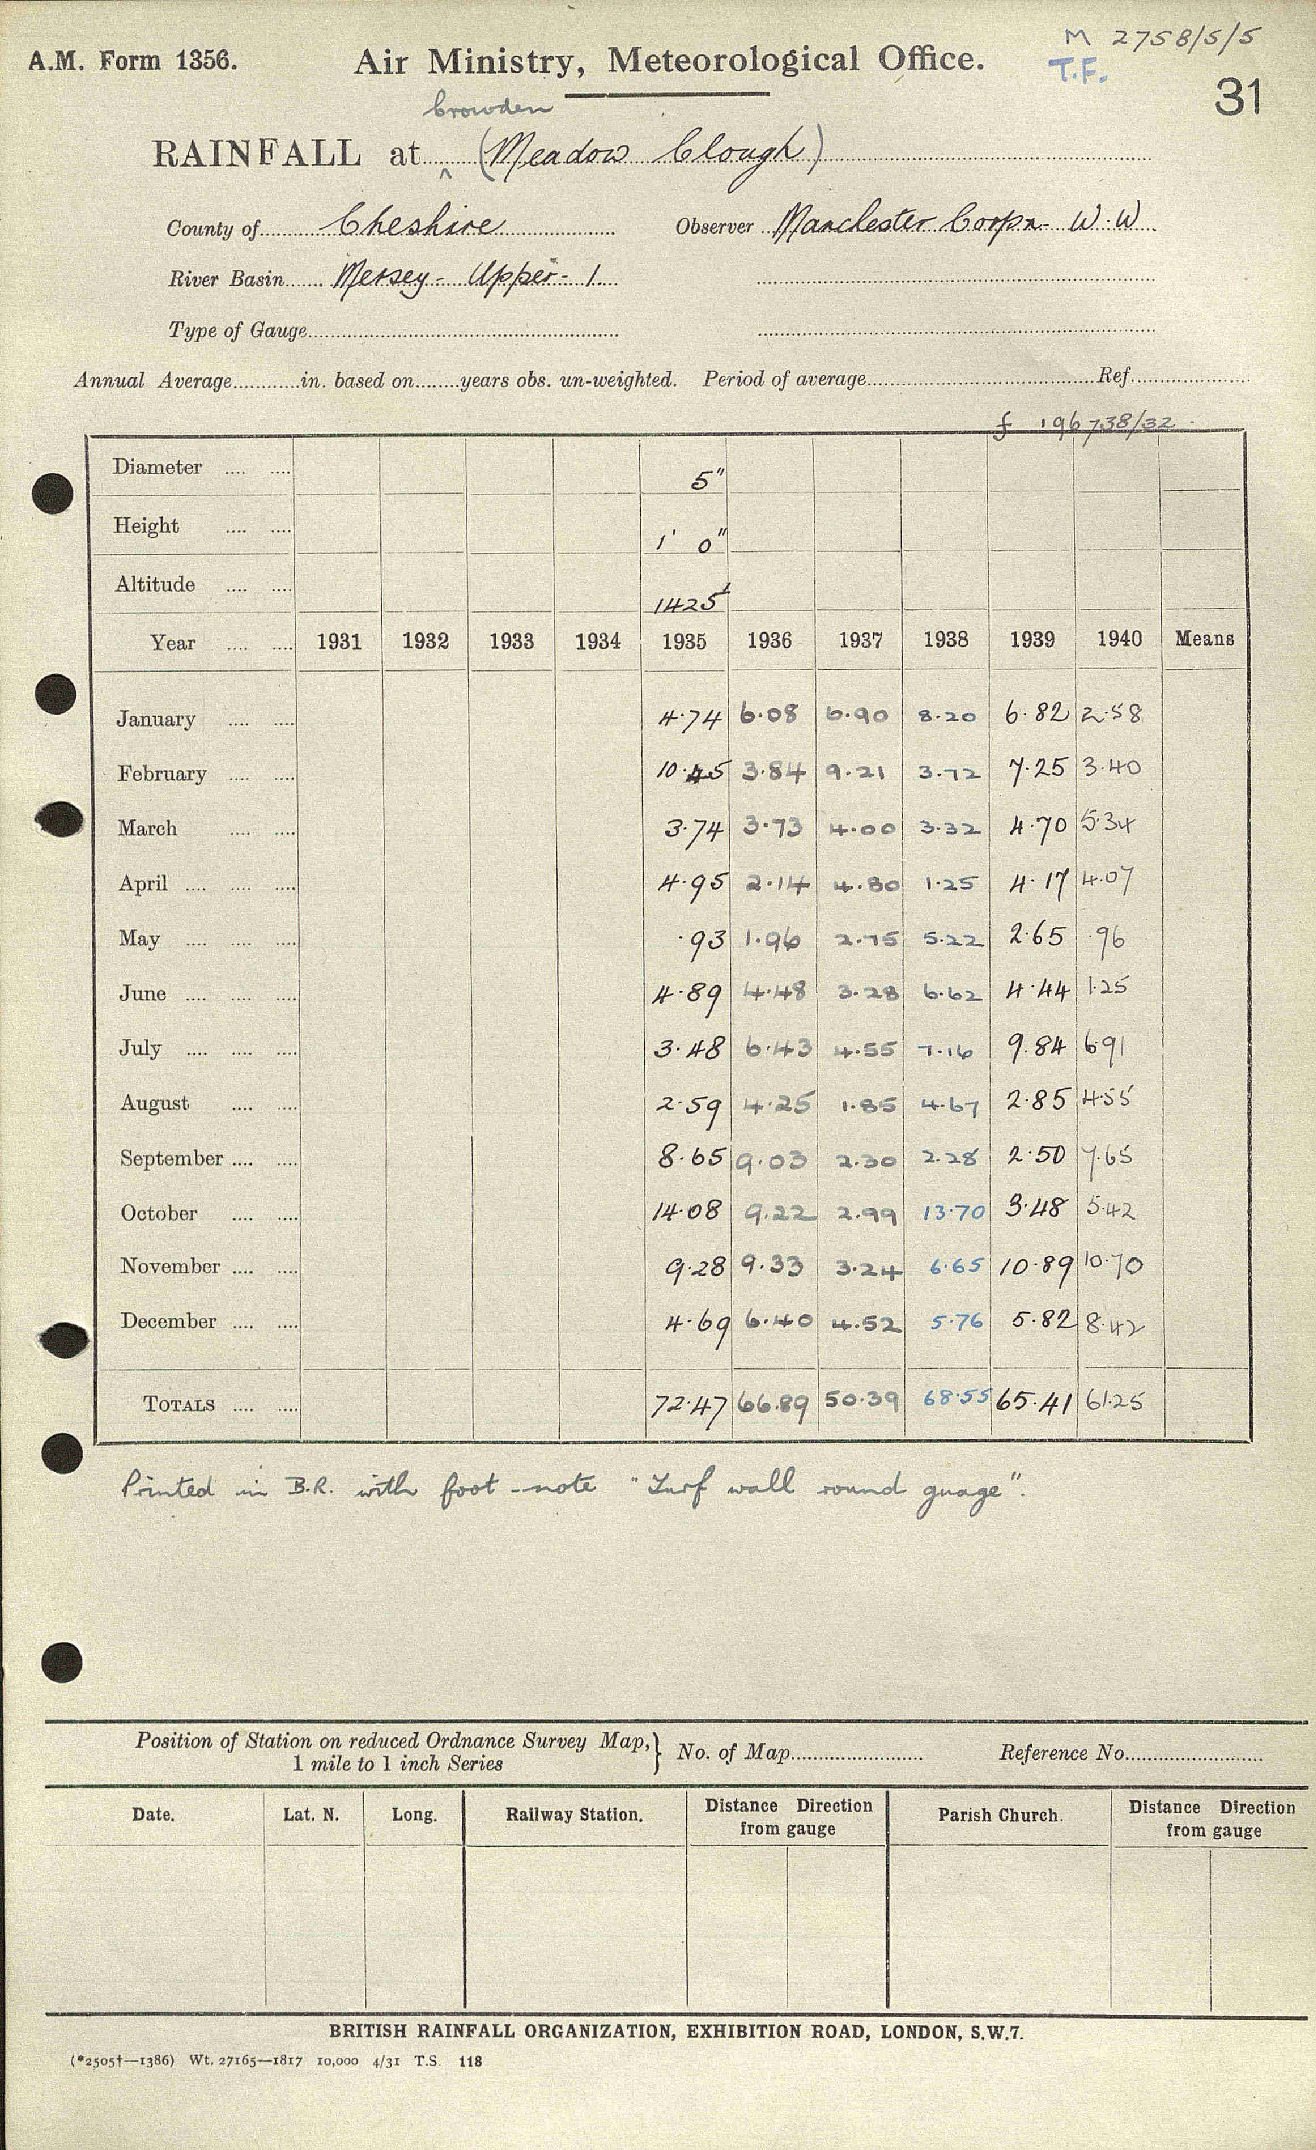 M 2758/5/5
A.M. Form 1356. Air Ministry, Meteorological Office. T.F.
31
Crowden
RAINFALL at ^ (Meadow Clough)
County of Cheshire Observer Manchester Corpn. W.W
River Basin Mersey - Upper - 1
Type of Gauge
Annual Average in. based on years obs. un-weighted. Period of average Ref.
f 196738/32
Diameter 5"
Height 1' 0"
Altitude 1425'
Year 1931 1932 1933 1934 1935 1936 1937 1938 1939 1940 Means
January 4.74 6.08 6.90 8.20 6.82 2.58
February 10.45 3.84 9.21 3.72 7.25 3.40
March 3.74 3.73 4.00 3.32 4.70 5.34
April 4.95 2.14 4.80 1.25 4.17 4.07
May .93 1.96 2.75 5.22 2.65 .96
June 4.89 4.48 3.28 6.62 4.44 1.25
July 3.48 6.43 4.55 7.16 9.84 6.91
August 2.59 4.25 1.85 4.67 2.85 4.55
September 8.65 9.03 2.30 2.28 2.50 7.65
October 14.08 9.22 2.99 13.70 3.48 5.42
November 9.28 9.33 3.24 6.65 10.89 10.70
December 4.69 6.40 4.52 5.76 5.82 8.42
TOTALS 72.47 66.89 50.39 68.55 65.41 61.25
Printed in B.R. with foot-note "Turf wall round guage".
Position of Station on reduced Ordnance Survey Map, } No. of Map Reference No.
1 mile to 1 inch Series
Date. Lat. N. Long. Railway Station. Distance Direction from gauge Parish Church. Distance Direction from gauge
BRITISH RAINFALL ORGANIZATION, EXHIBITION ROAD, LONDON, S.W.7.
(*2505†—1386) Wt. 27165—1817 10,000 4/31 T.S. 118